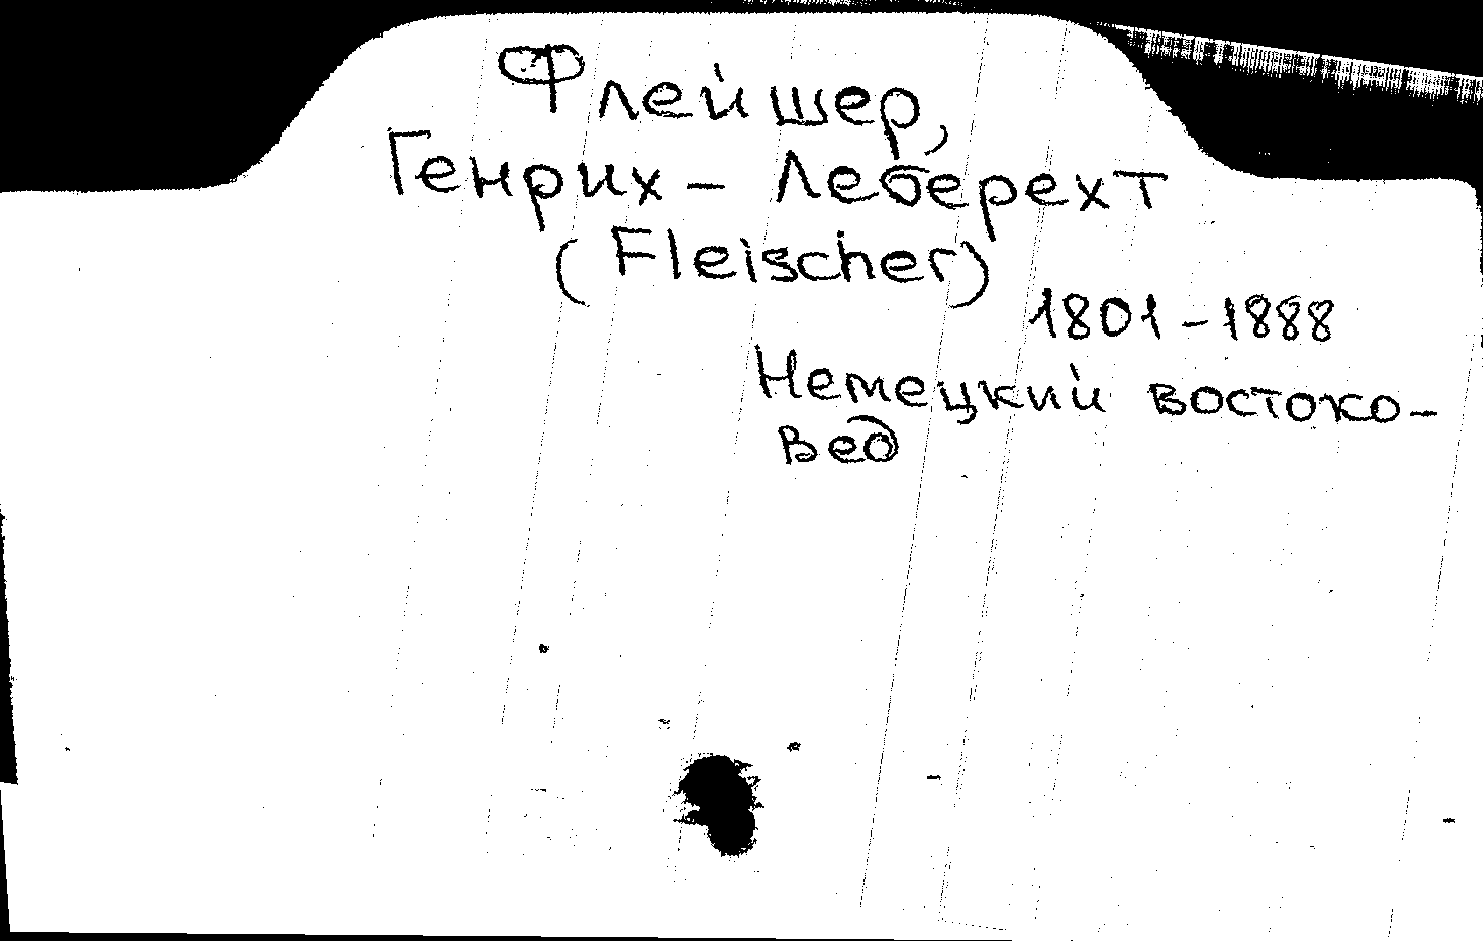 Флейшер,
Генрих - Леберехт
(Fleischer)
1801 - 1888
Немецкий востоко-
вед